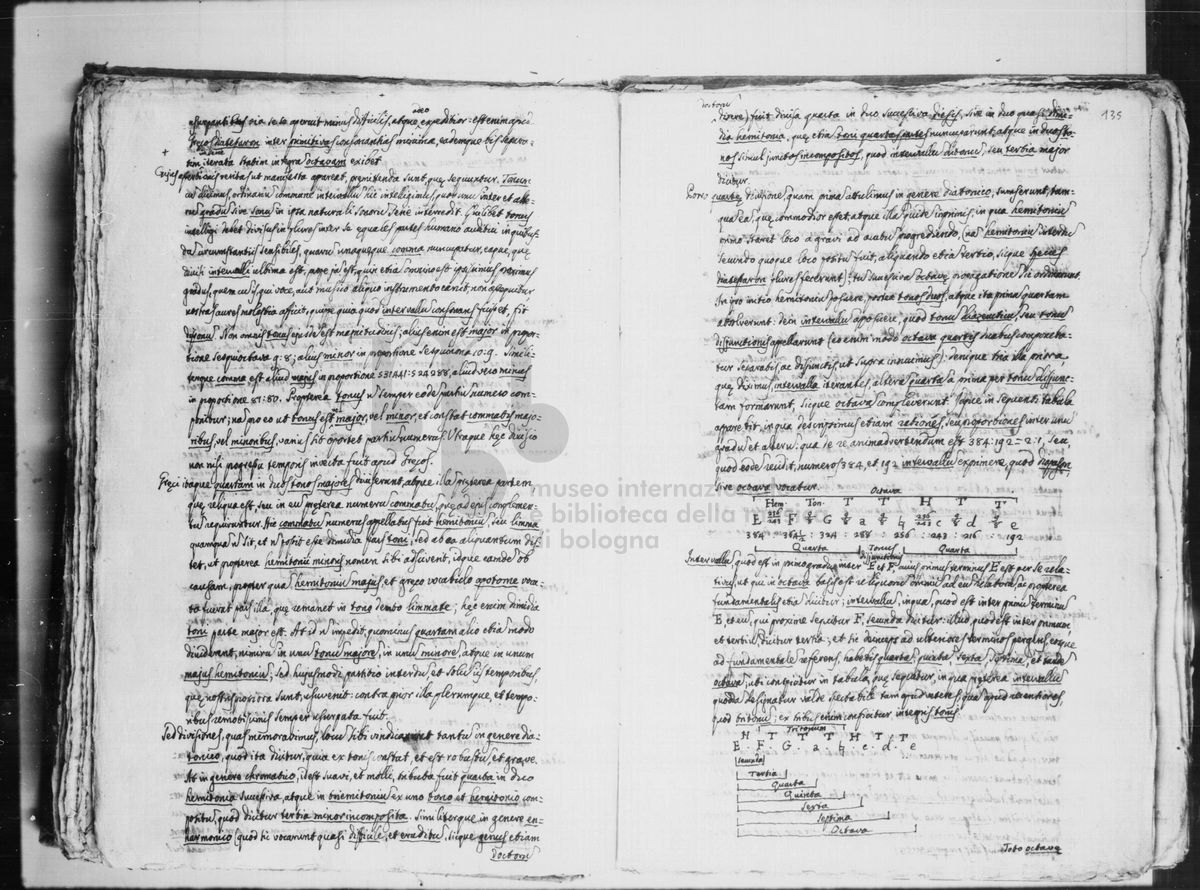 adeo
usurpantibus via sese aperuit minus difficilis, atque expeditior: est enim apud
Græcos diatesaron inter primitivas consonantias minima, eademque bis
iterata statim integra octavam exibet
Cujus assertionis veritas ut manifesta appareat, premittenda sunt quę sequuntur.
cu dicimus, ordinariu comunire intervallu hic intelligimus, quod inter et
gradu sive sonu in ipsa naturali sonoru serie intercedit. Quilibet tonus
intelligi debet divisus in plures inter se equales partes humano auditu in
da circumstantiis sensibiles, quaru unaqueque comma nuncupatur, eaque, que
intervalli ultima est, pene ja est, quin etia comuni est ipsissimus proximus
gradus, quem cu is, qui voce, aut musico aliquo instrumento canit, non assequitur
nostra aures molestia afficit,
Non omnis tonus ejusde est magnitudinis; alius enim est major in propor=
tione sesquioctava 9:8; alius minor in proportione sesquinona 10:9. Simili=
terque comma est aliud majus in proportione 531441:524288, aliud vero minus
in proportione 81:80. Propterea tonus n semper eode partiu numero com=
ponitur; nam pro eo ut tonus est major, vel minor, et constat commatis majo=
ribus, vel minoribus, varius sit oportet partiu numerus. Utraque hęc divisio
non nisi progressu temporis invecta fuit apud Gręcos.
Gręci itaque quartam in duos tonos majores diviserunt, atque illa pręterea partem
quę reliqua est, seu in eu pręterea numeru commatu, que ad ejus complemen=
tu requiruntur. Hic commatu numerus appellatus fuit hemitoniu, seu limma
quamqua n sit, et n possit esse dimidia pars toni; sed ab ea aliquantum dis=
tet, ut propterea hemitonii minoris nomen sibi adsciverit, idque eande ob
causam, propter qua hemitoniu majus et gręco vocabulo apotome voca=
ta fuerat pars illa, que remanet in tono dempto limmate; hęc enim dimidia
toni parte major est. At id n impedit, quominus quartam alio etia modo
dividerent, nimiru in unu tonu majore, in unu minore, atque in unum
majus hemitoniu; sed hujusmodi partitio interdu, et solu iis temporibus,
quę nostris propiora sunt, usuvenit: contra prior illa plerumque, et tempo=
ribus remotissimis semper usurpata fuit.
Sed divisiones, quas memoravimus, locu sibi vindicarunt tantu in genere dia=
tonico, quod ita dicitur, quia ex tonis constat, et est robustu, et grave.
At in genere chromatico, idest suavi, et molli, tributa fuit quarta in duo
hemitonia successiva, atque in triemitoniu ex uno tono et hemitonio com=
positu, quod dicitur tertia minor incomposita. Similiterque in genere en=
harmonico (quod sic vocarunt quasi difficile, et eruditu, sicque genus etiam
doctoru
135
doctoru
dicere) fuit divisa quarta in duo successiva diesis, sive in duo quasi dimi=
dia hemitonia, quę etia toni quartas partes nuncuparunt; atque in duos to=
nos simul junctos incompositos, quod intervallu ditonu, seu tertia major
dicitur.
Porro quartę divisione, quam prima attulimus in genere diatonico, sumserunt, tam=
qua ea, quę commodior esset; atque illa quide in primis, in qua hemitoniu
primo staret loco a gravi ad acutu progrediendo; na hemitoniu interdu
secundo quoque loco positu fuit, aliquando etia tertio, sicque species
diatesaron plures fecerunt; tu successiva octavę propagatione sic ordinarunt.
In prio initio hemitoniu posuere, postea tonos duos, atque ita prima quartam
absolverunt. Dein intervallu aposuere, quod tonu diazeuticu, seu tonu
disjunctionis appellarunt (eo enim modo octava quartis duabus componeba=
tur separatis, ac disjunctis, ut supra innuimus); denique tria illa priora
quę diximus, intervalla iterantes, altera quarta a prima per tonu disjunc=
tam formarunt, sicque octava compleverunt. Hęc in sequenti tabula
apparebit, in qua descripsimus etiam rationes, seu proportiones inter unu
gradu, et alteru: qua se re animadvertendum est 384:192 = 2:1, seu,
quod eode redit, numeros 384, et 192 intervallu exprimere, quod diapason,
sive octava vocatur.
Octava
Hem Ton T T H T T
E 256/243 F 9/8 G 9/8 a 9/8 ♮ 256/243 c 9/8 d 9/8 e
384 : 364½ : 324 : 288 : 256 : 243 : 216 : 192
Quarta Tonus disjunctionis Quarta
Intervallu, quod est in primo gradu inter E et F, cuius primus terminus E est per se rela=
tivus, ut qui in octava basis est, et reliquoru omniu ad eu relatoru, ac propterea
fundamentalis etia dicitur; intervallu, inqua, quod est inter primu terminu
E, et eu, qui proxime sequitur F, secunda dicitur: illud quod est inter primum
et tertiu, dicitur tertia; et sic deinceps ad ulteriores terminos pergens, eosque
ad fundamentale referens, habebis quarta, quinta, sexta, septima, et tande
octava; ubi conspicitur in tabula, quę sequitur, in qua pręterea intervallu
quodda designatur valde spectabile tam apud veteres, qua apud recentiores,
quod tritonu; ex tribus enim conficitur integris tonis
Tritonum
H T T T H T T
E · F · G · a · ♮ · c · d · e
Secunda
Tertia
Quarta
Quinta
Sexta
Septima
Octava
Toto octava
museo internazionale
e biblioteca della musica
di bologna